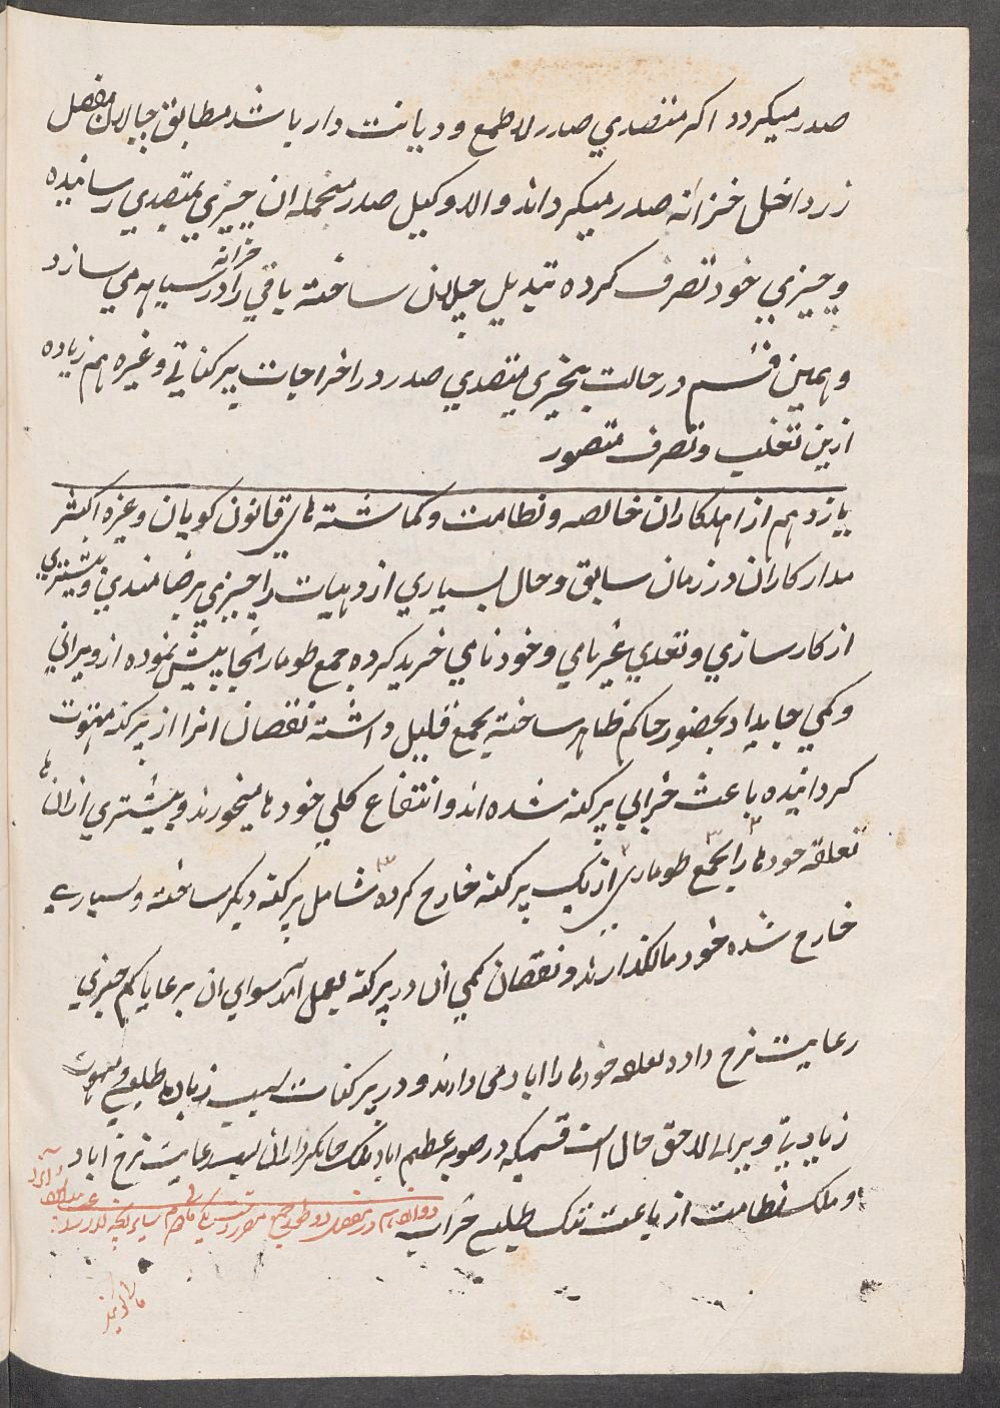 صدر میکردد اکر متصدي صدر لا طمع و دیانت دار باشد مطابق چالان مفصل
زر داخل خزانه صدر میکرداند والا وکیل صدر منجمله ان چیزي بمتصدي رسانیده
و چیزي خود تصرف کرده تبدیل چالان ساخته باقي را در خزانه سیاهه مي سازد
و همین قسم در حالت بیخبري متصدي صدر در اخراجات پرکناتي وغیره هم زیاده
ازین تغلب و تصرف متصور
یازدهم از اهلکاران خالصه و نظامت و کماشته های قانون کویان وغیره اکثر
مدار کاران در زمان سابق و حال بسیاري از دیهات را چیزي برضامندي و بیشتري
از کارسازي و تعدي غیر نامي و خود نامي خرید کرده جمع طومار انجا پیش نموده از ویراني
و کمي جایداد بحضور حاکم ظاهر ساخته بجمع قلیل داشته نقصان انرا از پرکنه منهوت
کردانیده باعث خرابي پرکنه شده اند و انتفاع کلي خود ها میخورند و بیشتري ازان ها
تعلقه خود ها را بجمع طوماري از یک پرکنه خارج کرده شامل پرکنه دیکر ساخته و بسیاری
خارج شده خود مالکذارند و نقصان کمي ان در پرکنه بعمل امد سوای ان برعایا کم چیزي
رعایت نرخ داده تعلقه خود ها را اباد می دارند و در پرکنات بسبب زیاده طلبي و
زیادتي ویراني لاحق حال است قسمیکه در صوبه عظیم اباد ملک جاکیرداران بسبب رعایت نرخ اباد
و ملک نظامت از باعث تنک طلبي خراب